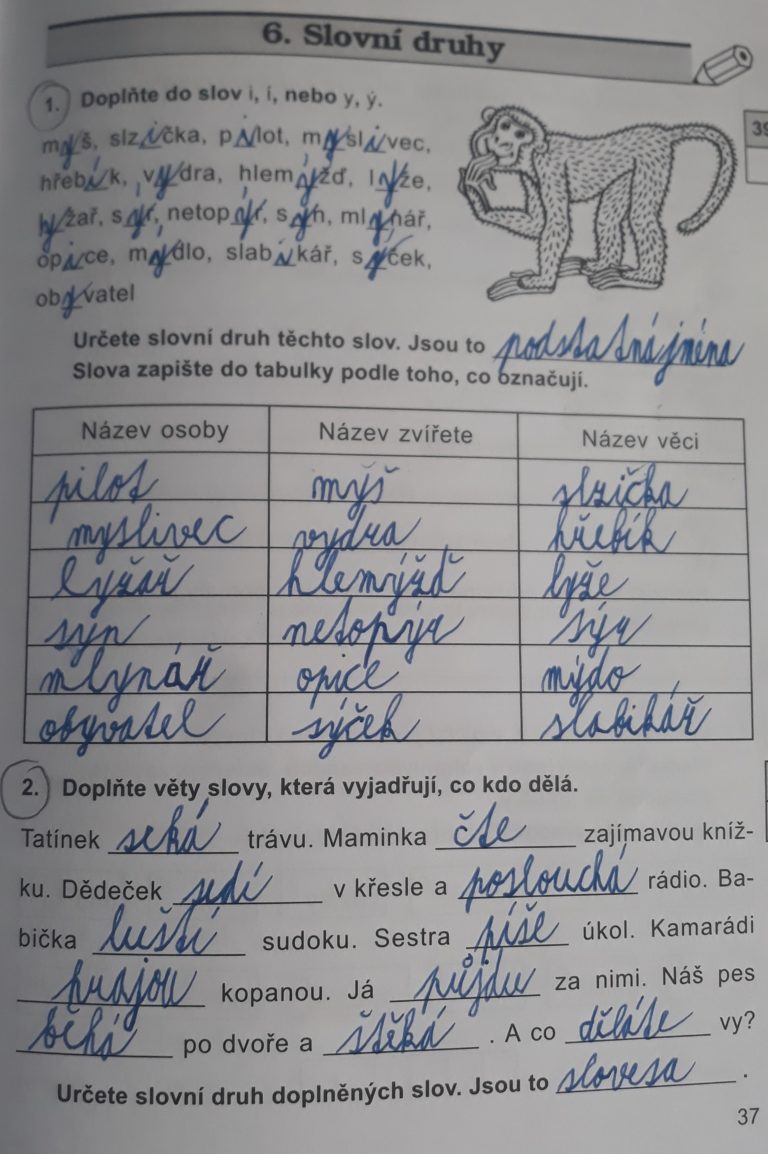 6. Slovní druhy
1. Doplňte do slov i, í, nebo y, ý.
myš, slzička, pilot, myslivec,
hřebík, vydra, hlemýžď, lyže,
lyžař, sýr, netopýr, syn, mlynář,
opice, mýdlo, slabikář, sýček,
obyvatel
39
Určete slovní druh těchto slov. Jsou to podstatná jména
Slova zapište do tabulky podle toho, co označují.
Název osoby Název zvířete Název věci
pilot myš slzička
myslivec vydra hřebík
lyžař hlemýžď lyže
syn netopýr sýr
mlynář opice mýdo
obyvatel sýček slabikář
2. Doplňte věty slovy, která vyjadřují, co kdo dělá.
Tatínek seká trávu. Maminka čte zajímavou kníž-
ku. Dědeček sedí v křesle a poslouchá rádio. Ba-
bička luští sudoku. Sestra píše úkol. Kamarádi
hrajou kopanou. Já půjdu za nimi. Náš pes
běhá po dvoře a štěká. A co děláte vy?
Určete slovní druh doplněných slov. Jsou to slovesa.
37